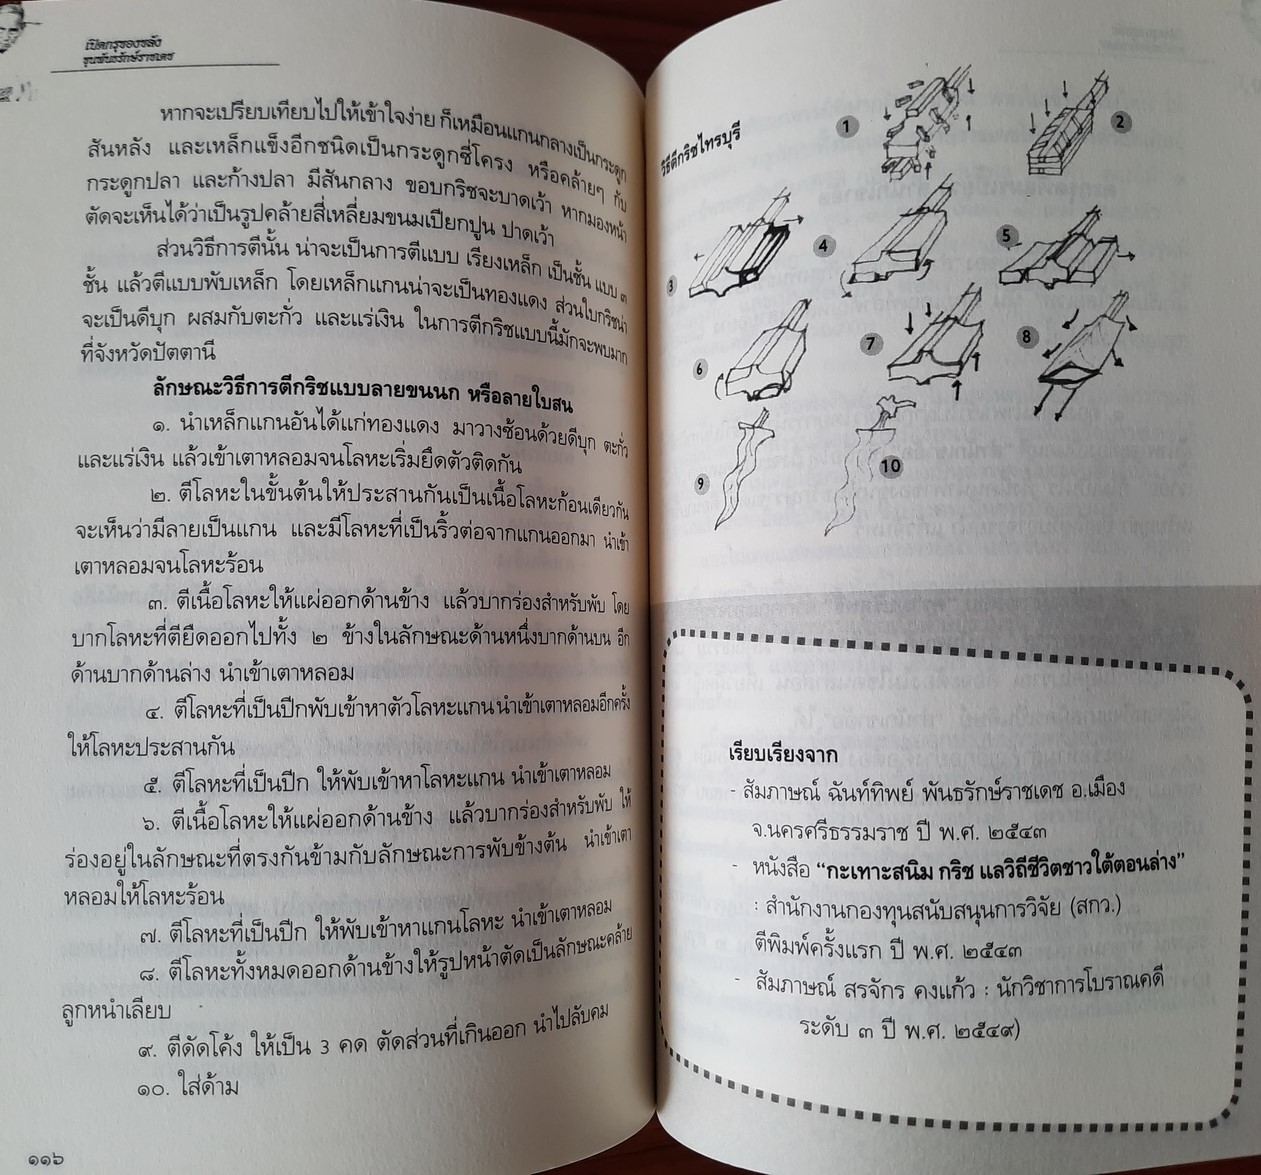 เปิดกรุของขลัง
ขุนพันธรักษ์ราชเดช
หากจะเปรียบเทียบไปให้เข้าใจง่าย ก็เหมือนแกนกลางเป็นกระดูก
สันหลัง และเหล็กแข็งอีกชนิดเป็นกระดูกซี่โครง หรือคล้ายๆ กับ
กระดูกปลา และก้างปลา มีสันกลาง ขอบกริชจะบาดเว้า หากมองหน้า
ตัดจะเห็นได้ว่าเป็นรูปคล้ายสี่เหลี่ยมขนมเปียกปูน ปาดเว้า
ส่วนวิธีการตีนั้น น่าจะเป็นการตีแบบ เรียงเหล็ก เป็นชั้น แบบ ๓
ชั้น แล้วตีแบบพับเหล็ก โดยเหล็กแกนน่าจะเป็นทองแดง ส่วนใบกริชน่า
จะเป็นดีบุก ผสมกับตะกั่ว และแร่เงิน ในการตีกริชแบบนี้มักจะพบมาก
ที่จังหวัดปัตตานี
ลักษณะวิธีการตีกริชแบบลายขนนก หรือลายใบสน
๑. นำเหล็กแกนอันได้แก่ทองแดง มาวางซ้อนด้วยดีบุก ตะกั่ว
และแร่เงิน แล้วเข้าเตาหลอมจนโลหะเริ่มยึดตัวติดกัน
๒. ตีโลหะในขั้นต้นให้ประสานกันเป็นเนื้อโลหะก้อนเดียวกัน
จะเห็นว่ามีลายเป็นแกน และมีโลหะที่เป็นริ้วต่อจากแกนออกมา นำเข้า
เตาหลอมจนโลหะร้อน
๓. ตีเนื้อโลหะให้แผ่ออกด้านข้าง แล้วบากร่องสำหรับพับ โดย
บากโลหะที่ตียืดออกไปทั้ง ๒ ข้างในลักษณะด้านหนึ่งบากด้านบน อีก
ด้านบากด้านล่าง นำเข้าเตาหลอม
๔. ตีโลหะที่เป็นปีกพับเข้าหาตัวโลหะแกนนำเข้าเตาหลอมอีกครั้ง
ให้โลหะประสานกัน
๕. ตีโลหะที่เป็นปีก ให้พับเข้าหาโลหะแกน นำเข้าเตาหลอม
๖. ตีเนื้อโลหะให้แผ่ออกด้านข้าง แล้วบากร่องสำหรับพับ ให้
ร่องอยู่ในลักษณะที่ตรงกันข้ามกับลักษณะการพับข้างต้น นำเข้าเตา
หลอมให้โลหะร้อน
๗. ตีโลหะที่เป็นปีก ให้พับเข้าหาแกนโลหะ นำเข้าเตาหลอม
๘. ตีโลหะทั้งหมดออกด้านข้างให้รูปหน้าตัดเป็นลักษณะคล้าย
ลูกหนำเลียบ
๙. ตีดัดโค้ง ให้เป็น 3 คด ตัดส่วนที่เกินออก นำไปลับคม
๑๐. ใส่ด้าม
๑๑๖
วิธีตีกริชไทรบุรี
1
2
3
4
5
6
7
8
9
10
เรียบเรียงจาก
- สัมภาษณ์ ฉันท์ทิพย์ พันธรักษ์ราชเดช อ.เมือง
จ.นครศรีธรรมราช ปี พ.ศ. ๒๕๔๓
- หนังสือ “กะเทาะสนิม กริช แลวิถีชีวิตชาวใต้ตอนล่าง”
: สำนักงานกองทุนสนับสนุนการวิจัย (สกว.)
ตีพิมพ์ครั้งแรก ปี พ.ศ. ๒๕๔๓
- สัมภาษณ์ สรจักร คงแก้ว : นักวิชาการโบราณคดี
ระดับ ๓ ปี พ.ศ. ๒๕๔๙)